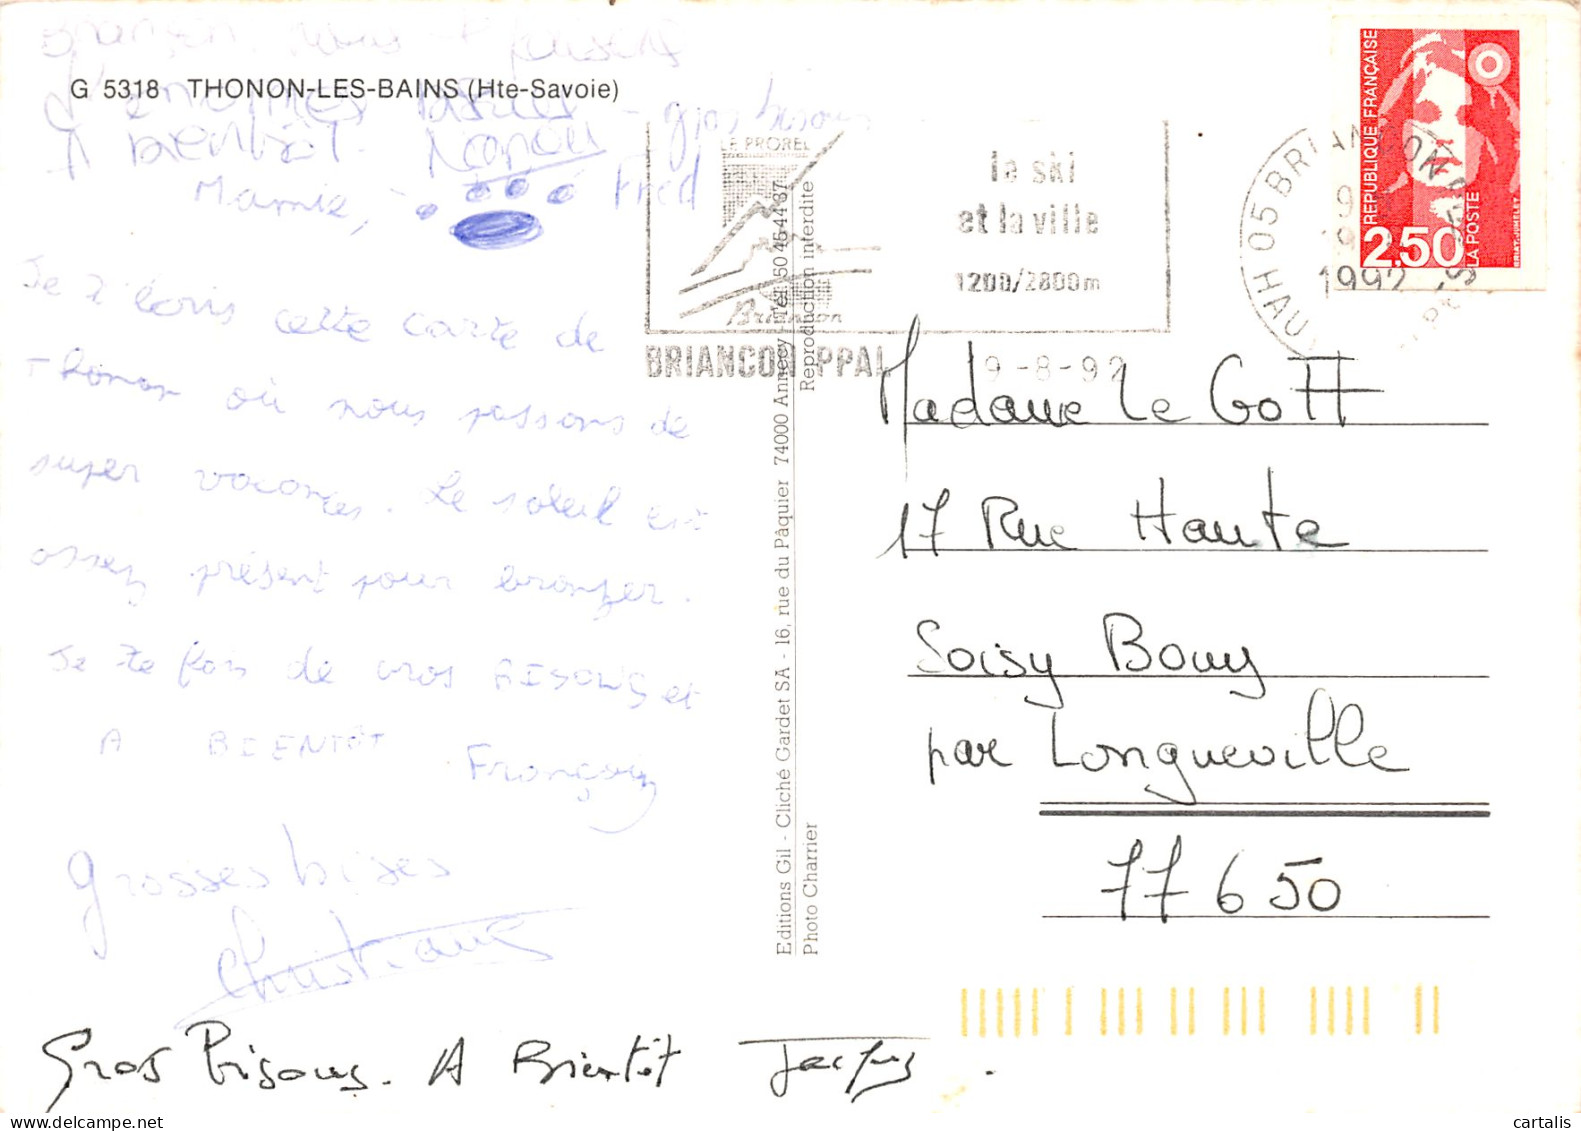 Briançon, nous
G 5318 THONON-LES-BAINS (Hte-Savoie)
gros bisous
A bientôt. Nanou
Mamie, Fred
Je t'écris cette carte de
Thonon où nous passons de
super vacances. Le soleil est
assez présent pour bronzer.
Je te fais de gros BISOUS et
A BIENTÔT
Françou
grosses bises
Christiane
Gros Bisous. A Bientôt Jacques.
Editions Gil - Cliché Gardet SA - 16, rue du Pâquier 74000 Annecy - Tél. 50 45 44 37
Photo Charrier
Reproduction interdite
LE PROREL
Briançon
le ski
et la ville
1200/2800m
BRIANCON PPAL
9-8-92
05 BRIANCON
1992
REPUBLIQUE FRANÇAISE
2,50
LA POSTE
Madame Le Goff
17 Rue Haute
Soisy Bouy
par Longueville
77 650
cartalis